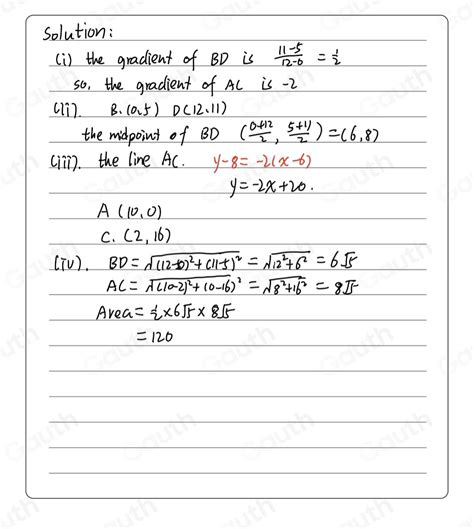 Solution:
(i) the gradient of BD is \frac{11-5}{12-0} = \frac{1}{2}
so, the gradient of AC is -2
(ii). B.(0,5) D(12,11)
the midpoint of BD (\frac{0+12}{2}, \frac{5+11}{2}) = (6,8)
(iii). the line AC. y-8 = -2(x-6)
y = -2x+20.
A (10,0)
C. (2,16)
(iv). BD = \sqrt{(12-0)^2+(11-5)^2} = \sqrt{12^2+6^2} = 6\sqrt{5}
AC = \sqrt{(10-2)^2+(0-16)^2} = \sqrt{8^2+16^2} = 8\sqrt{5}
Area = \frac{1}{2}×6\sqrt{5}×8\sqrt{5}
= 120